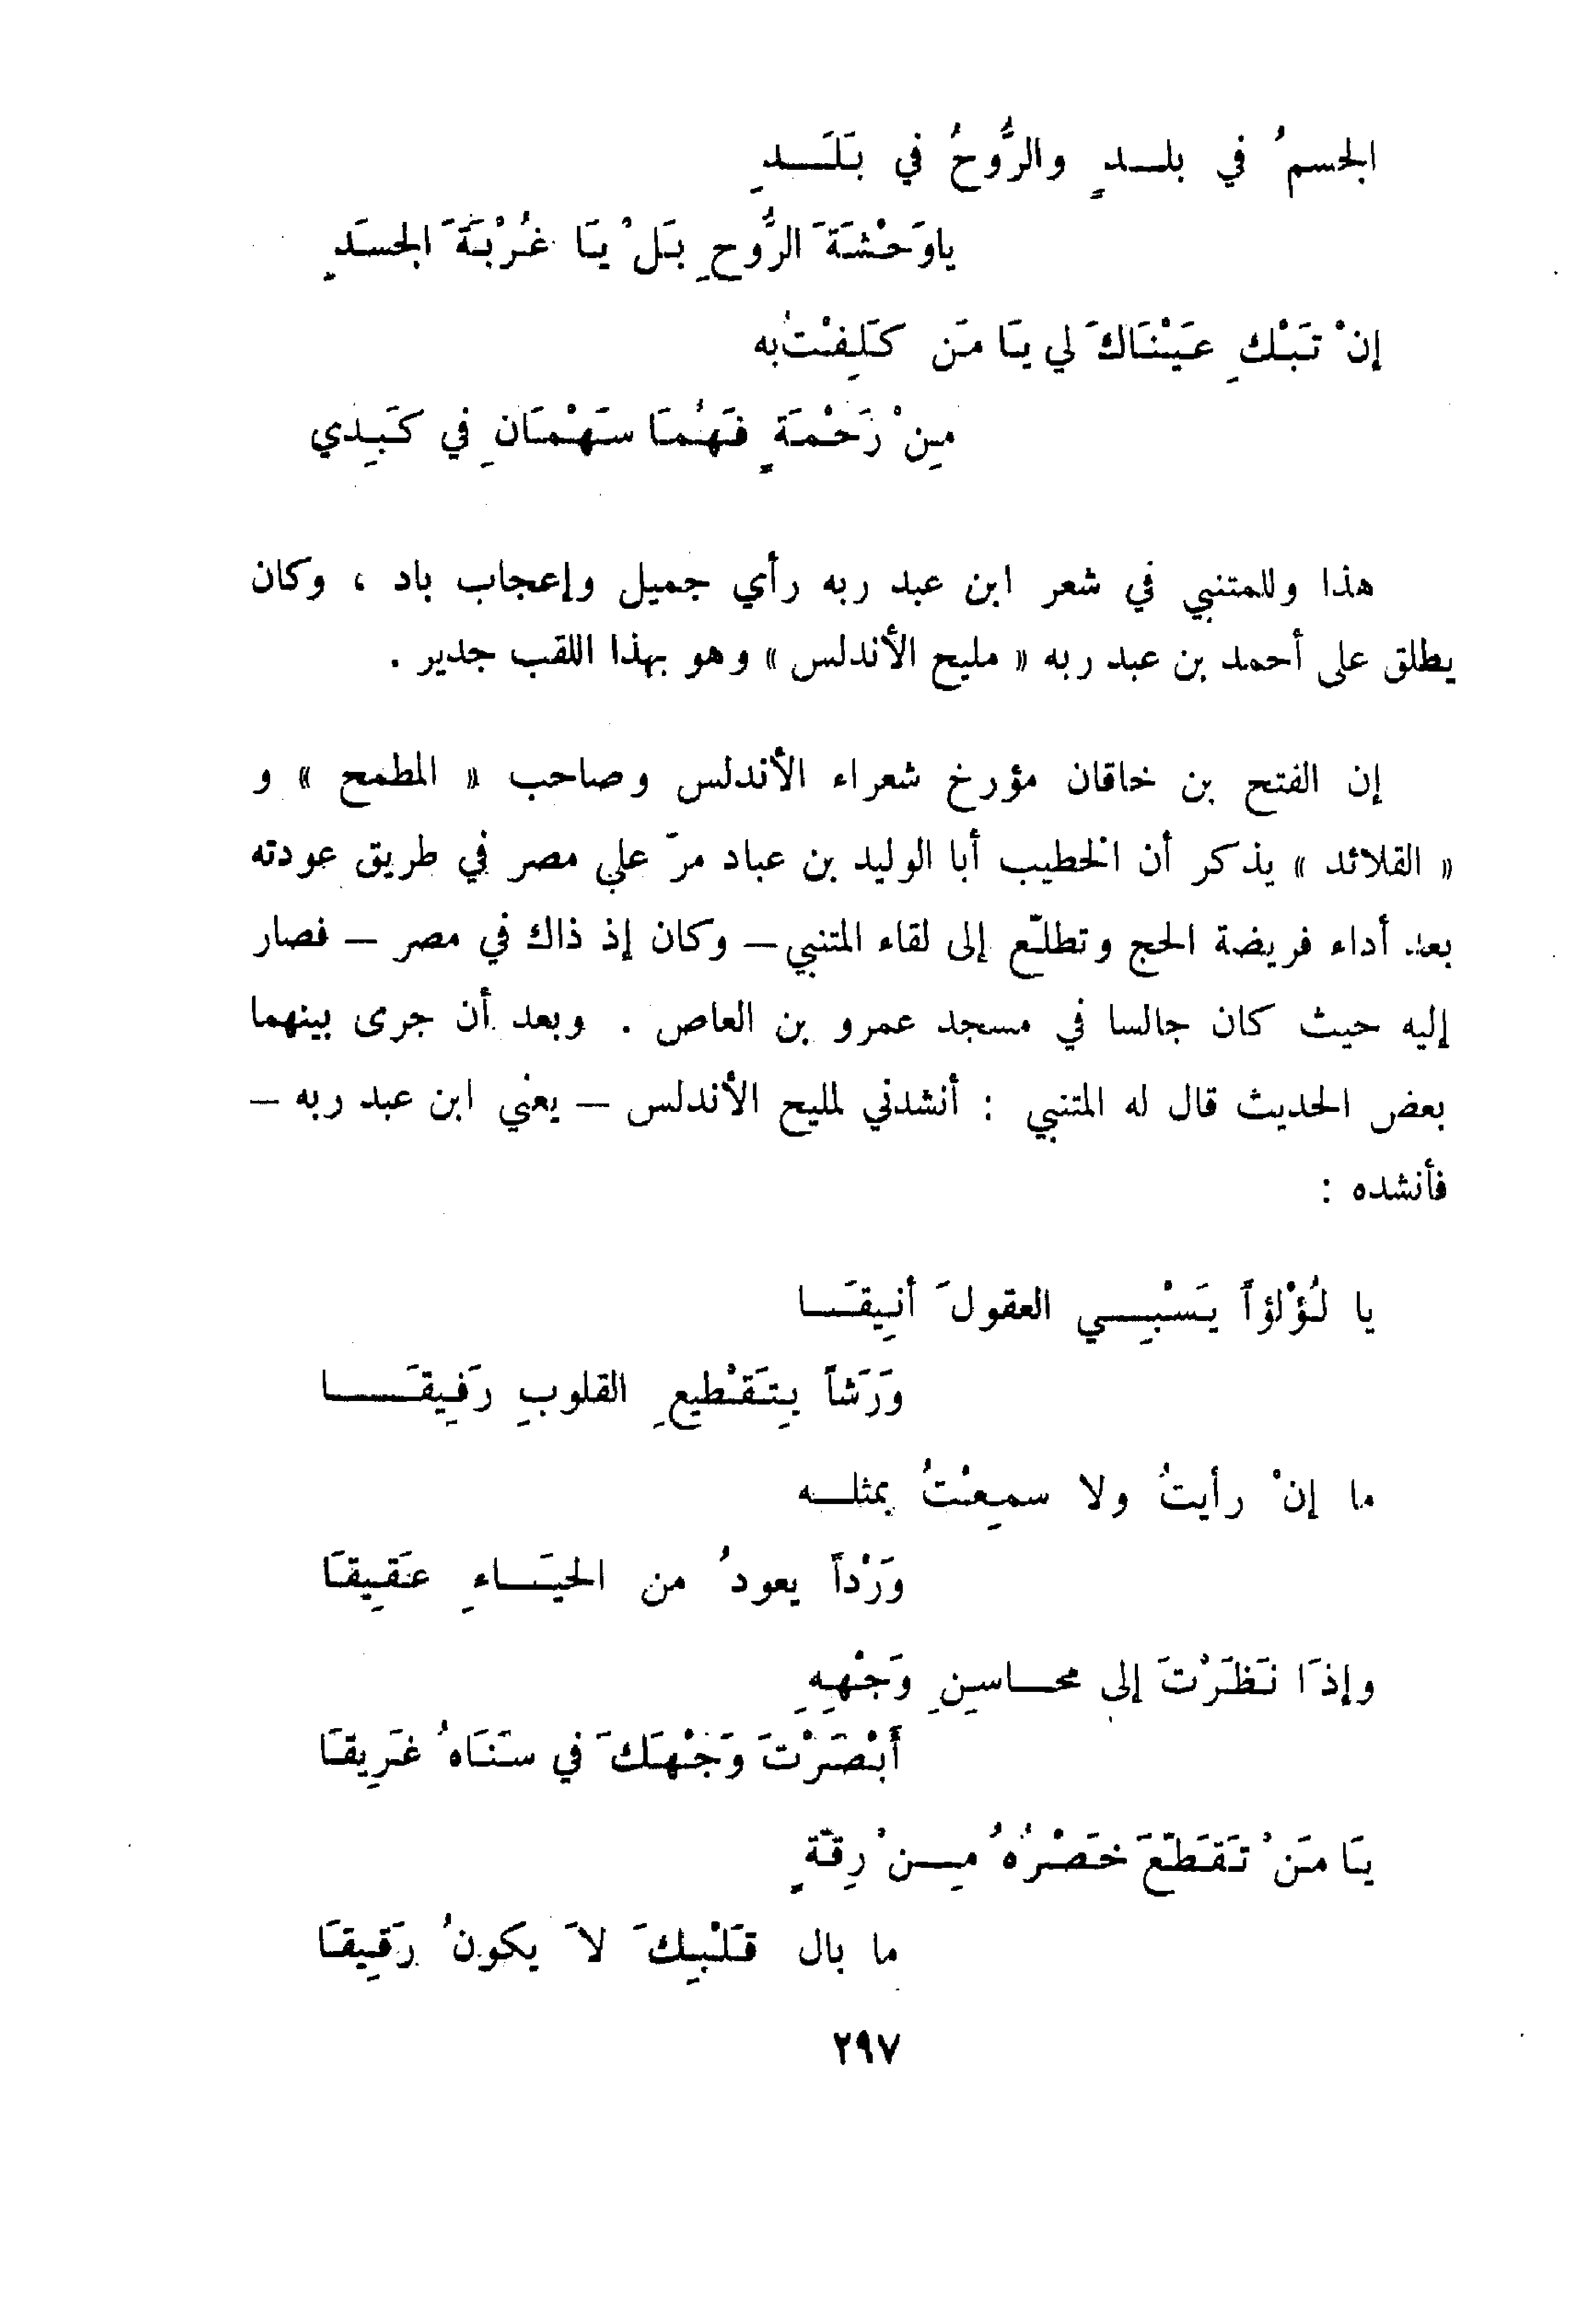 الجسمُ في بلـــدٍ والرُّوحُ في بَلَـــدِ
ياوَحْشَةَ الرُّوحِ بَلْ يَا غُرْبَةَ الجسَدِ
إنْ تَبْكِ عَيْنَاكَ لي يَا مَن كَلِفْتُ به
مِنْ رَحْمَةٍ فَهُمَا سَهْمَانِ في كَبِدي
هذا وللمتنبي في شعر ابن عبد ربه رأي جميل وإعجاب باد ، وكان
يطلق على أحمد بن عبد ربه « مليح الأندلس » وهو بهذا اللقب جدير .
إن الفتح بن خاقان مؤرخ شعراء الأندلس وصاحب « المطمح » و
« القلائد » يذكر أن الخطيب أبا الوليد بن عباد مرّ علي مصر في طريق عودته
بعد أداء فريضة الحج وتطلّع إلى لقاء المتنبي — وكان إذ ذاك في مصر — فصار
إليه حيث كان جالسا في مسجد عمرو بن العاص . وبعد أن جرى بينهما
بعض الحديث قال له المتنبي : أنشدني لمليح الأندلس — يعني ابن عبد ربه —
فأنشده :
يا لُؤْلؤاً يَسْبِـــي العقولَ أنِيقَـــا
وَرَشاً بِتَقْطيعِ القلوبِ رَفِيقَـــا
ما إنْ رأيتُ ولا سمِعْتُ بمثلـــه
وَرْداً يعودُ من الحيَـــاءِ عَقِيقَا
وإذَا نَظَرْتَ إلى محـــاسِنِ وَجْهِهِ
أَبْصَرْتَ وَجْهَكَ في سَنَاهُ غَرِيقَا
يَا مَنْ تَقَطَّعَ خَصْرُهُ مِـــنْ رِقَّةٍ
ما بال قَلْبِكَ لاَ يكونُ رَقِيقَا
٢٩٧